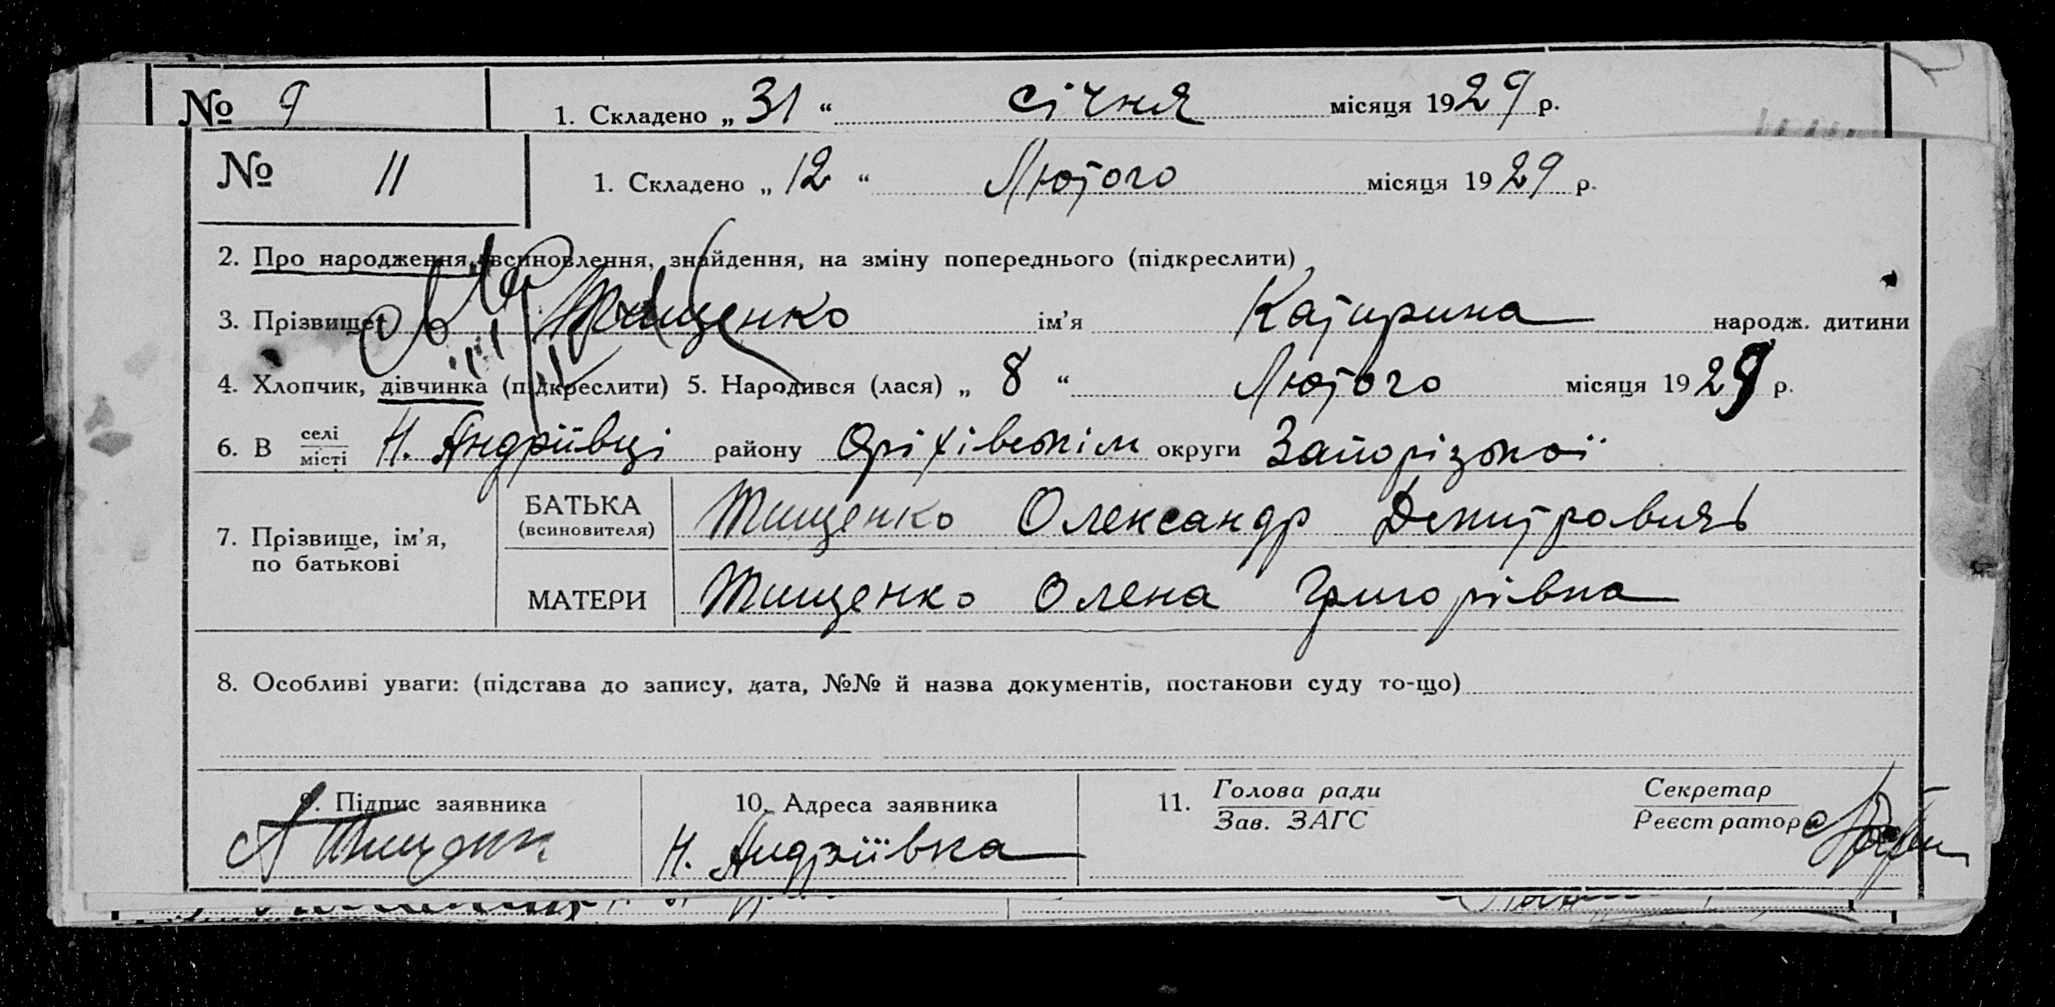 № 9 1. Складено „ 31 “ січня місяця 1929 р.
№ 11 1. Складено „ 12 “ Лютого місяця 1929 р.
2. Про народження, всиновлення, знайдення, на зміну попереднього (підкреслити)
3. Прізвище Тищенко ім’я Катирина народж. дитини
4. Хлопчик, дівчинка (підкреслити) 5. Народився (лася) „ 8 “ Лютого місяця 1929 р.
6. В селі місті Н. Андріївці району Оріхівським округи Запорізької
7. Прізвище, ім’я, по батькові
БАТЬКА (всиновителя) Тищенко Олександр Дмитрович
МАТЕРИ Тищенко Олена Григорівна
8. Особливі уваги: (підстава до запису, дата, №№ й назва документів, постанови суду то-що)
9. Підпис заявника 10. Адреса заявника 11. Голова ради Секретар
Зав. ЗАГС Реєстратор
А Тищенк Н. Андріївка